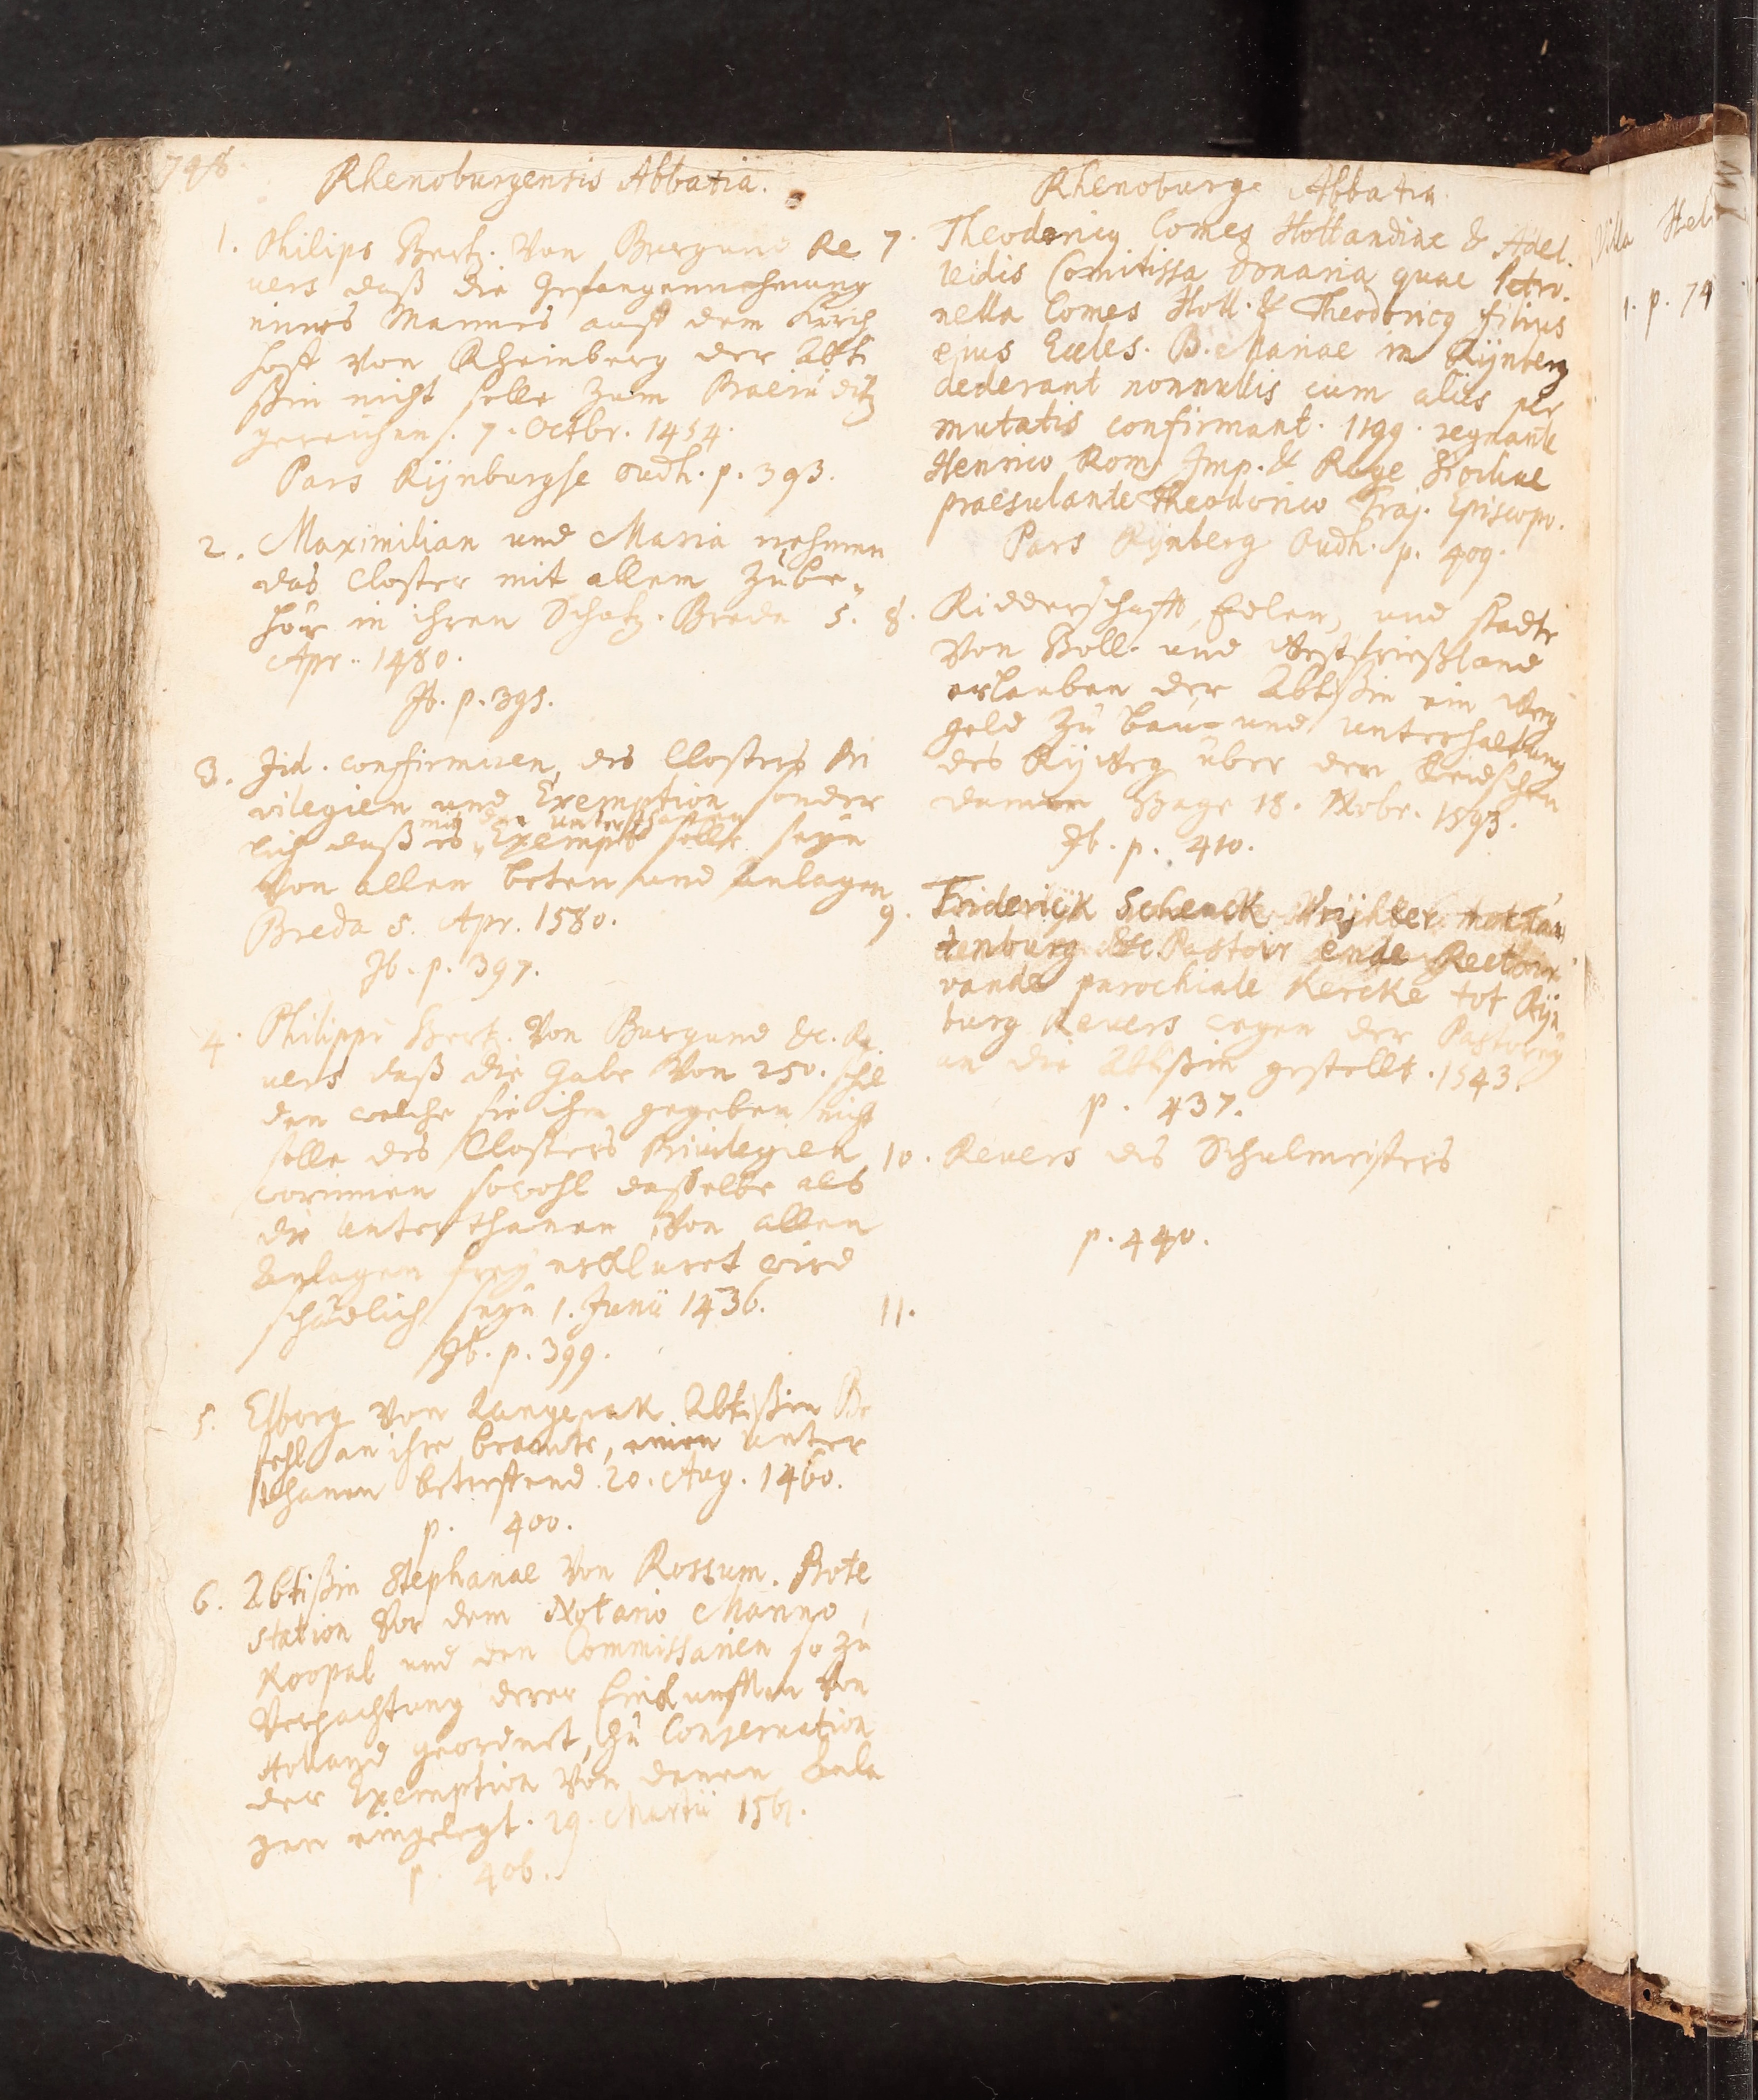 748
Rhenoburgensis Abbatia.
1. Philips Hertz. Von Burgund Re
vers daß die Gefangennehmung
eines Mannes auß dem Kirch
hoff von Rheinberg der Abti
ßin nicht solle zum Praeiuditz
gereichen. 7. Octbr. 1454.
Pars Rijnburgse oudh. p. 393.
2. Maximilian und Maria nehmen
das Closter mit allem Zube„
hör in ihren Schutz. Breda 5.
Apr. 1480.
Ib. p. 395.
3. Iid. confirmiren des Closters Pri
vilegien und Exemption sonder
lich daß es mit den unterthanen Exempt solle seyn
von allen beten und Anlagen
Breda 5. Apr. 1580.
Ib. p. 397.
4. Philipps Hertz. Von Burgund &c. Re
vers daß die Gabe Von 250. schil
den welche sie ihm gegeben nicht
solle des Closters Privilegien
worinnen sowohl dasselbe als
die Unterthanen von allen
Anlagen frey erkläret wird
schädlich seyn 1. Junii 1436.
Ib. p. 399.
5. Elborg Von Langerak Abtißin Be
fehl an ihre beamte, einen Unter
thanen betreffend. 20. Aug. 1460.
p. 400.
6. Abtißin Stephanae Von Rossum. Prote
station Vor dem Notario Manno
Koopal und den Commissarien so zu
Verpachtung derer Einkunfften Von
Holland geordnet, zu Conservation
der Exemption von denen Anla
gen eingelegt. 29. Martii 1561.
p. 406.
Rhenoburg. Abbatia.
7. Theodoricq Comes Hollandiae & Adel.
heidis Comitissa donaria quae Petro.
nella Comes Holl. & Theodoricq filius
ejus Eccles. B. Mariae in Rijnberg
dederant nonnullis cum aliis per
mutatis confirmant. 1199. regnante
Henrico Rom. Imp. & Rege Siciliae
praesulante Theodorico Traj. Episcopo.
Pars Rijnberg Oudh. p. 409.
8. Ridderschafft, Edlen, und Stadte
Von Holl. und Westfrießland
erlauben der Abtißin ein Weg
geld zu bau- und unterhaltung
des Rijweg über den Leidschen
damm Hage 18. Nobr. 1593.
Ib. p. 410.
9. Friderijk Schenck Vrijhter
tenburg &c. Pastoir ende Rectoir
vande parochiale Kercke tot Rijn
burg Revers wegen der Pastorey
an die Abtißin gestellt. 1543.
p. 437.
10. Revers des Schulmeisters
p. 440.
11.
Villa Hel
1. p. 74